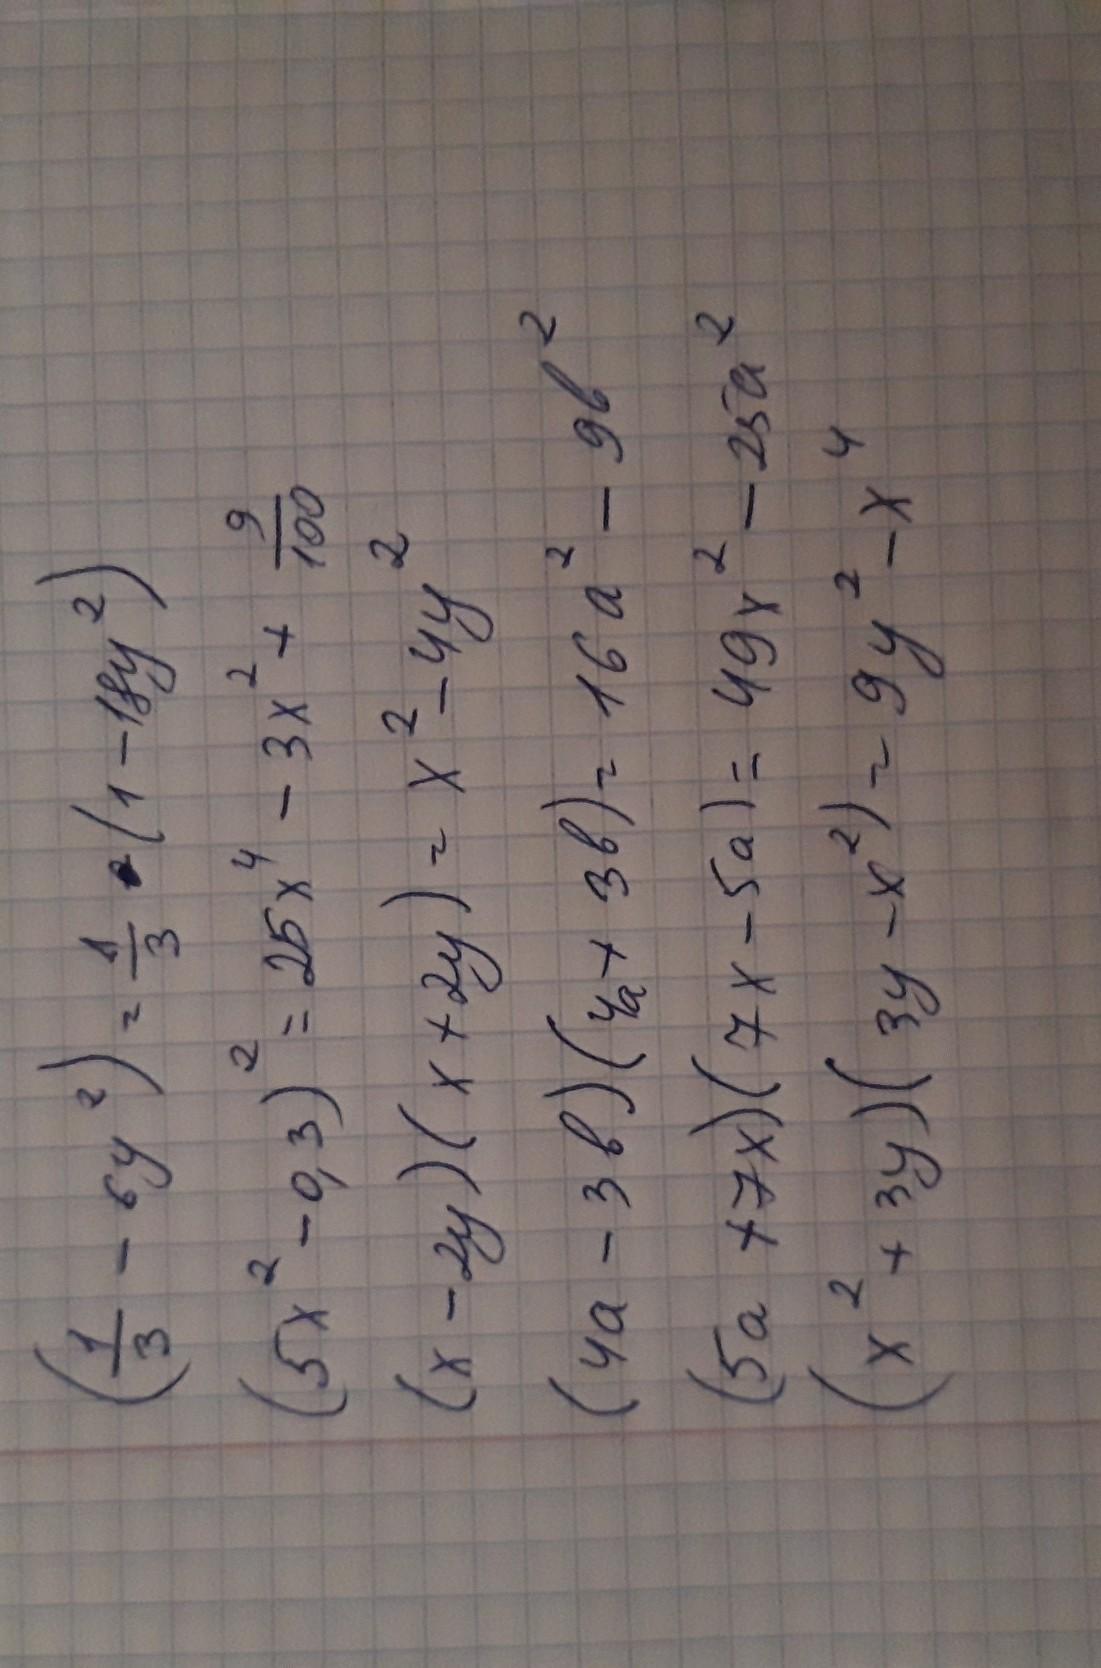 (1/3 - 6y²) = 1/3 • (1 - 18y²)
(5x² - 0,3)² = 25x⁴ - 3x² + 9/100
(x - 2y)(x + 2y) = x² - 4y²
(4a - 3b)(4a + 3b) = 16a² - 9b²
(5a + 7x)(7x - 5a) = 49x² - 25a²
(x² + 3y)(3y - x²) = 9y² - x⁴